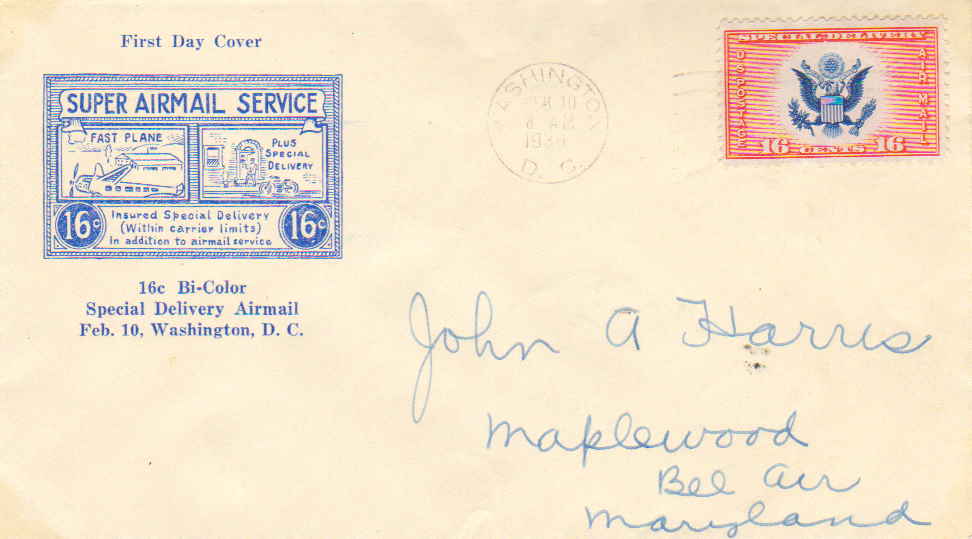 First Day Cover
SUPER AIRMAIL SERVICE
FAST PLANE
PLUS
SPECIAL
DELIVERY
16c
Insured Special Delivery
(Within carrier limits)
In addition to airmail service
16c
16c Bi-Color
Special Delivery Airmail
Feb. 10, Washington, D. C.
WASHINGTON
10
D. C.
SPECIAL DELIVERY
US POSTAGE
AIR MAIL
16 CENTS 16
John A Harris
Maplewood
Bel Air
Maryland